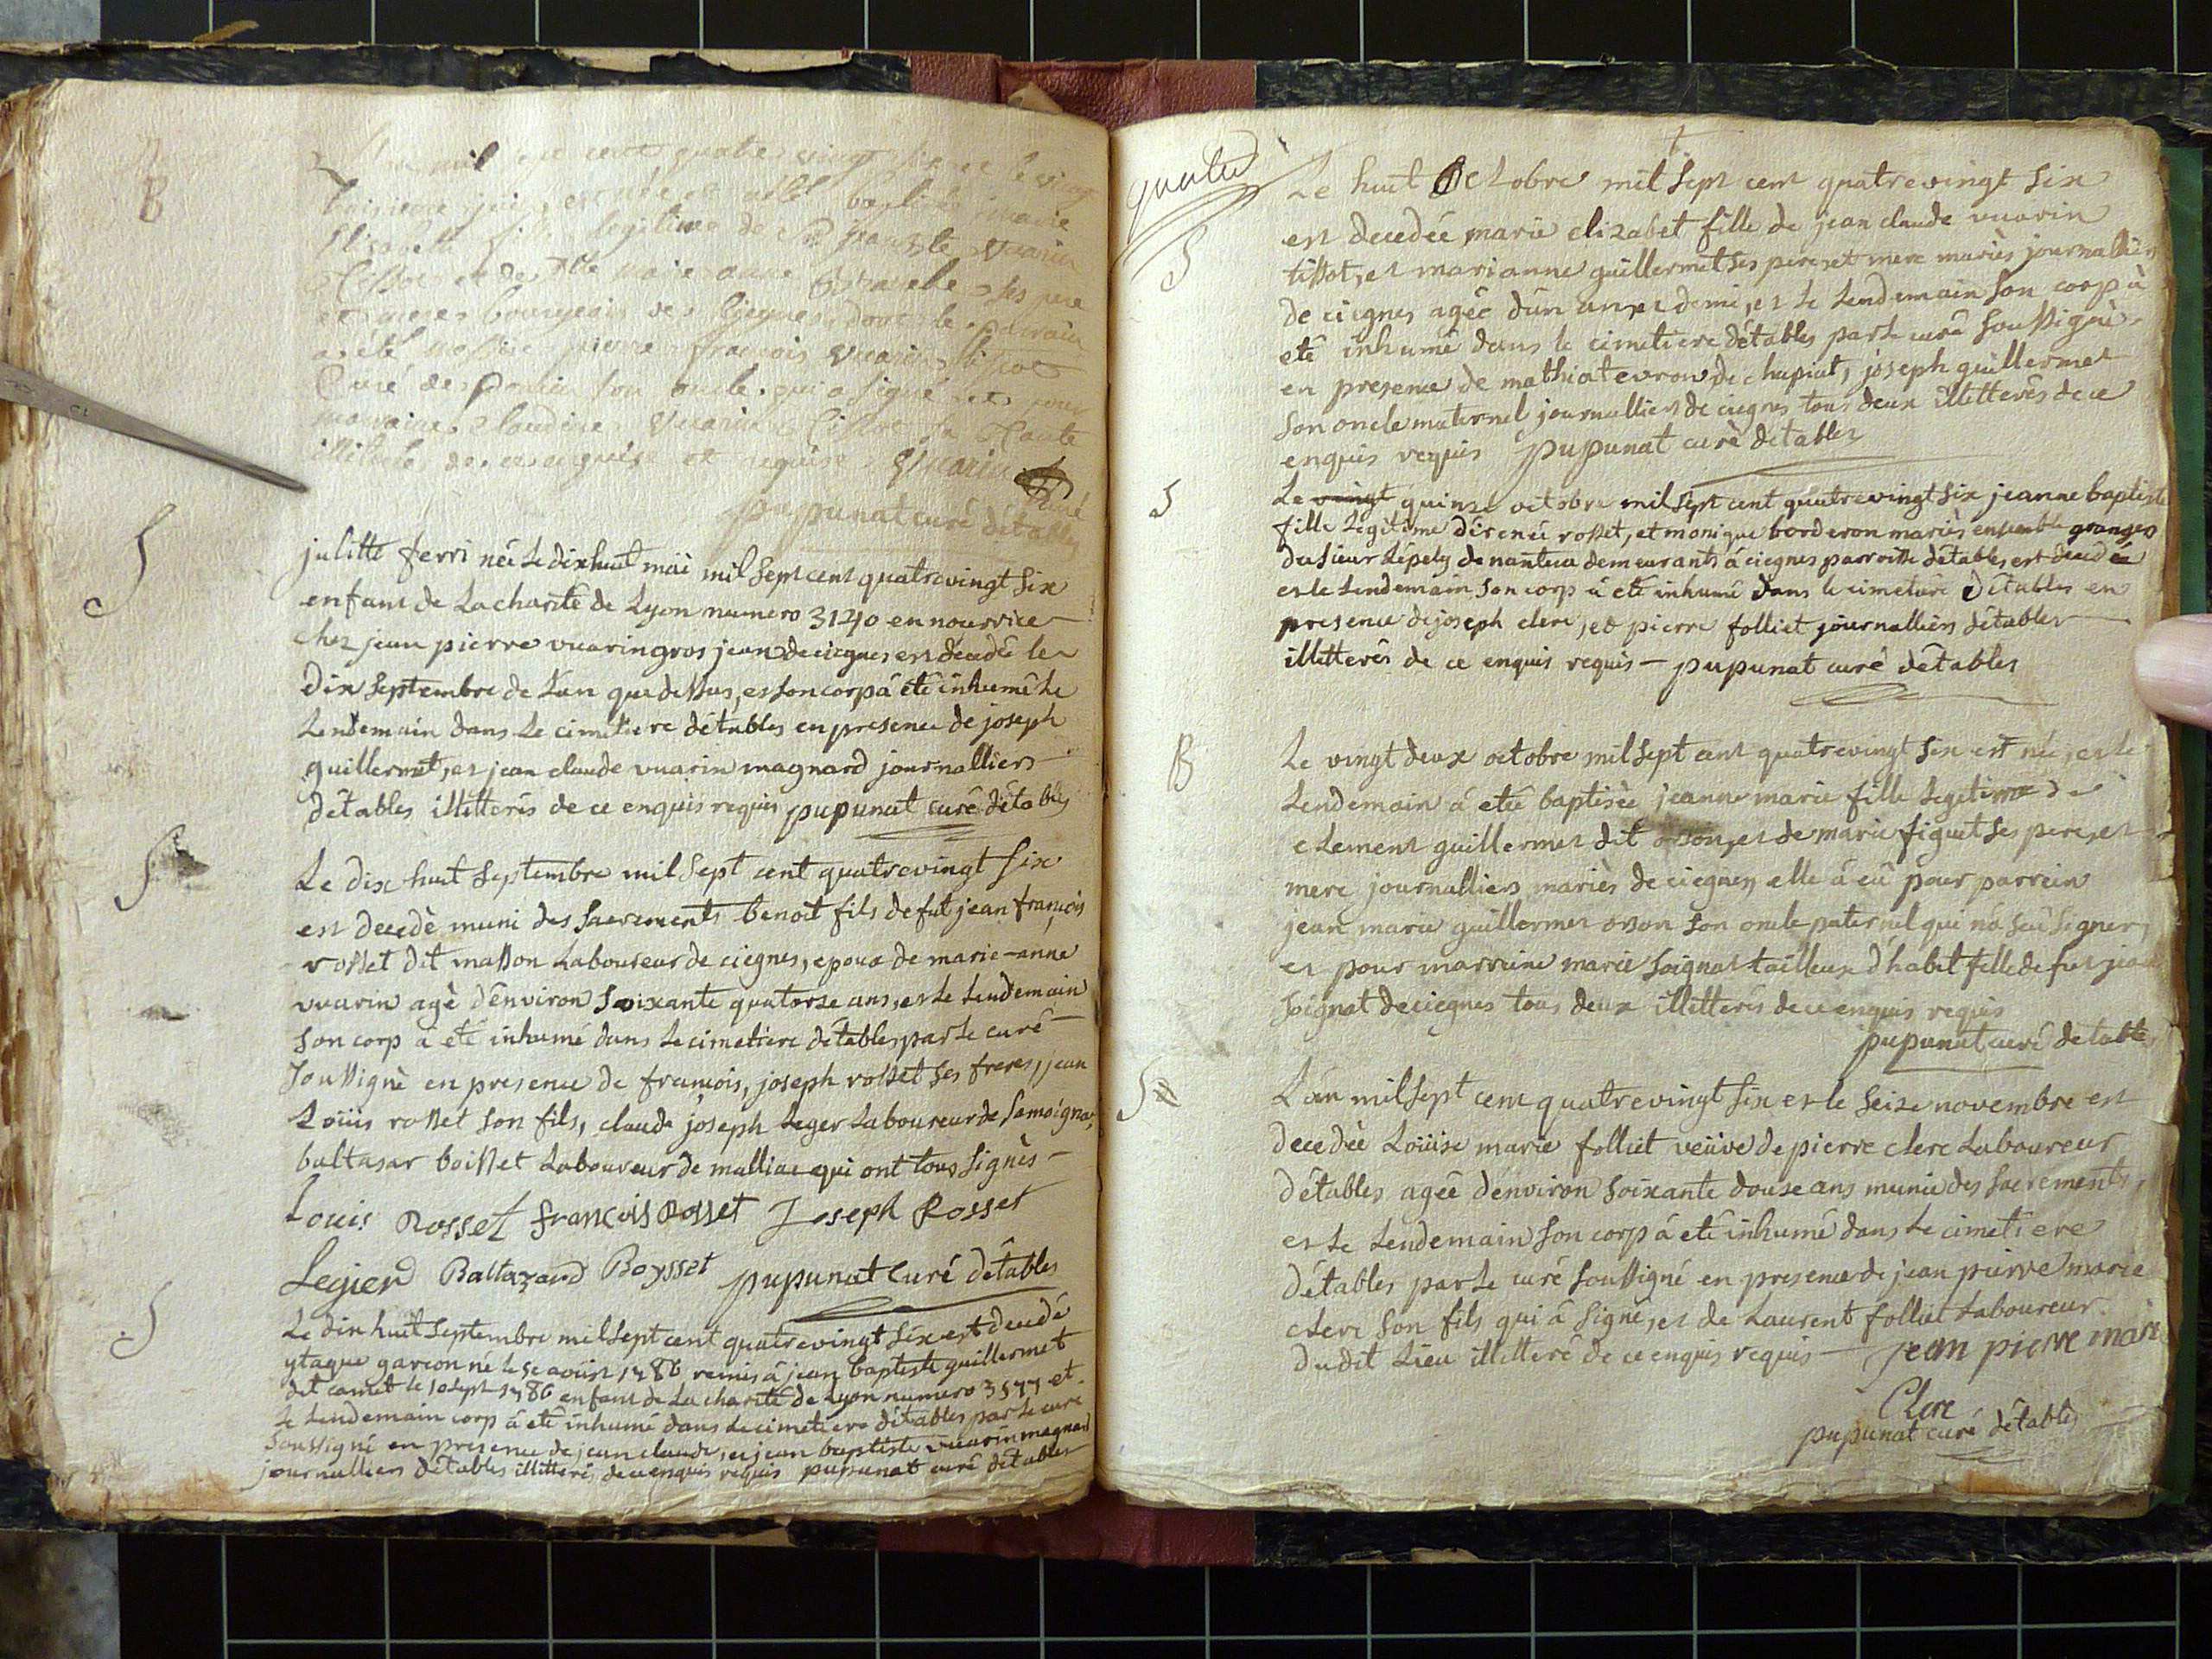 B
mil cent quatre vingt le vingt
baptisée marie
Elisabeth fille legitime de Vuarin
et de marie anne ses pere
et mere bourgeois de dont le parrain
a été messire pierre françois Vuarin tissot
Curé de son oncle qui a signé et pour
marraine Claudine Vuarin tissot sa tante
illiterée de ce enquise et requise Vuarin
Curé
pupunat curé détables
S
julitte ferri née le dixhuit mai mil sept cent quatrevingt six
enfant de La charité de Lyon numero 3140 en nourrice
chez jean pierre vuarin gros jean de ciegnes est decedée le
dix septembre de l'an que dessus, et son corp à eté inhumé le
Lendemain dans Le cimetiere détables en presence de joseph
guillermet, et jean claude vuarin magnard journalliers
détables illitterés de ce enquis requis pupunat curé détables
S
Le dix huit septembre mil sept cent quatrevingt six
est decedé muni des sacrements benoit fils de fut jean françois
rosset dit masson Laboureur de ciegnes, epoux de marie-anne
vuarin agè d'environ soixante quatorze ans, et Le Lendemain
son corp à eté inhumé dans Le cimetiere détables par Le curé
soussigné en presence de francois, joseph rosset ses freres, jean
Loüis rosset son fils, claude joseph Leger Laboureur de samoignat,
baltasar boisset Laboureur de malliac qui ont tous signès
Louis Rosset françois Rosset Joseph Rosset
Legier Baltazard Boysset pupunat Curé détables
S
Le dix huit septembre mil sept cent quatrevingt six est decedé
ytaque garcon né le 5e août 1786 remis à jean baptiste guillermet
dit camet le 10 sept 1786 enfant de La charité de Lyon numero 3577 et
le Lendemain corp à eté inhumé dans Le cimetiere détables par Le curé
soussigné en presence de jean claude, et jean baptiste vuarin magnard
journalliers détables illitterés de ce enquis requis pupunat curé détables
S
Le huit Octobre mil sept cent quatrevingt six
est decedée marie elizabet fille de jean claude vuarin
tissot, et marianne guillermet ses pere, et mere mariés journalliers
de ciegnes agée d'un an et demi, et Le Lendemain son corp à
eté inhumé dans le cimetiere détables par Le curé soussigné
en presence de mathia tevron de chapiat, joseph guillermet
son oncle maternel journalliers de ciegnes tous deux illitterés de ce
enquis requis pupunat curé détables
S
Le vingt quinze octobre mil sept cent quatrevingt six jeanne baptiste
fille Legitime d'irenée rosset, et monique borderon mariés ensemble grangers
du sieur Lépely de nantua demeurants à ciegnes parroisse détables est decedée
et le Lendemain son corp à eté inhumé dans le cimetiere détables en
presence de joseph clerc, et pierre folliet journalliers détables
illitterés de ce enquis requis - pupunat curé détables
B
Le vingt deux octobre mil sept cent quatrevingt six est née, et le
Lendemain à eté baptisée jeanne marie fille Legitime de
clement guillermet dit orson, et de marie figuet ses pere, et
mere journalliers mariés de ciegnes elle à eû pour parrein
jean marie guillermet orson son oncle paternel qui n'à seû signer,
et pour marreine marie soignat tailleuse d'habit fille de fut jean
soignat de ciegnes tous deux illitterés de ce enquis requis
pupunat curé détables
S
L'an mil sept cent quatrevingt six et le seize novembre est
decedée Loüise marie folliet veüve de pierre clerc Laboureur
détables agée d'environ soixante douze ans munie des sacrements,
et Le Lendemain son corp à eté inhumé dans Le cimetiere
détables par Le curé soussigné en presence de jean pierre marie
clerc son fils qui à signé, et de Laurent folliet Laboureur
dudit Lieu illitteré de ce enquis requis jean pierre marie
Clerc
pupunat curé détables